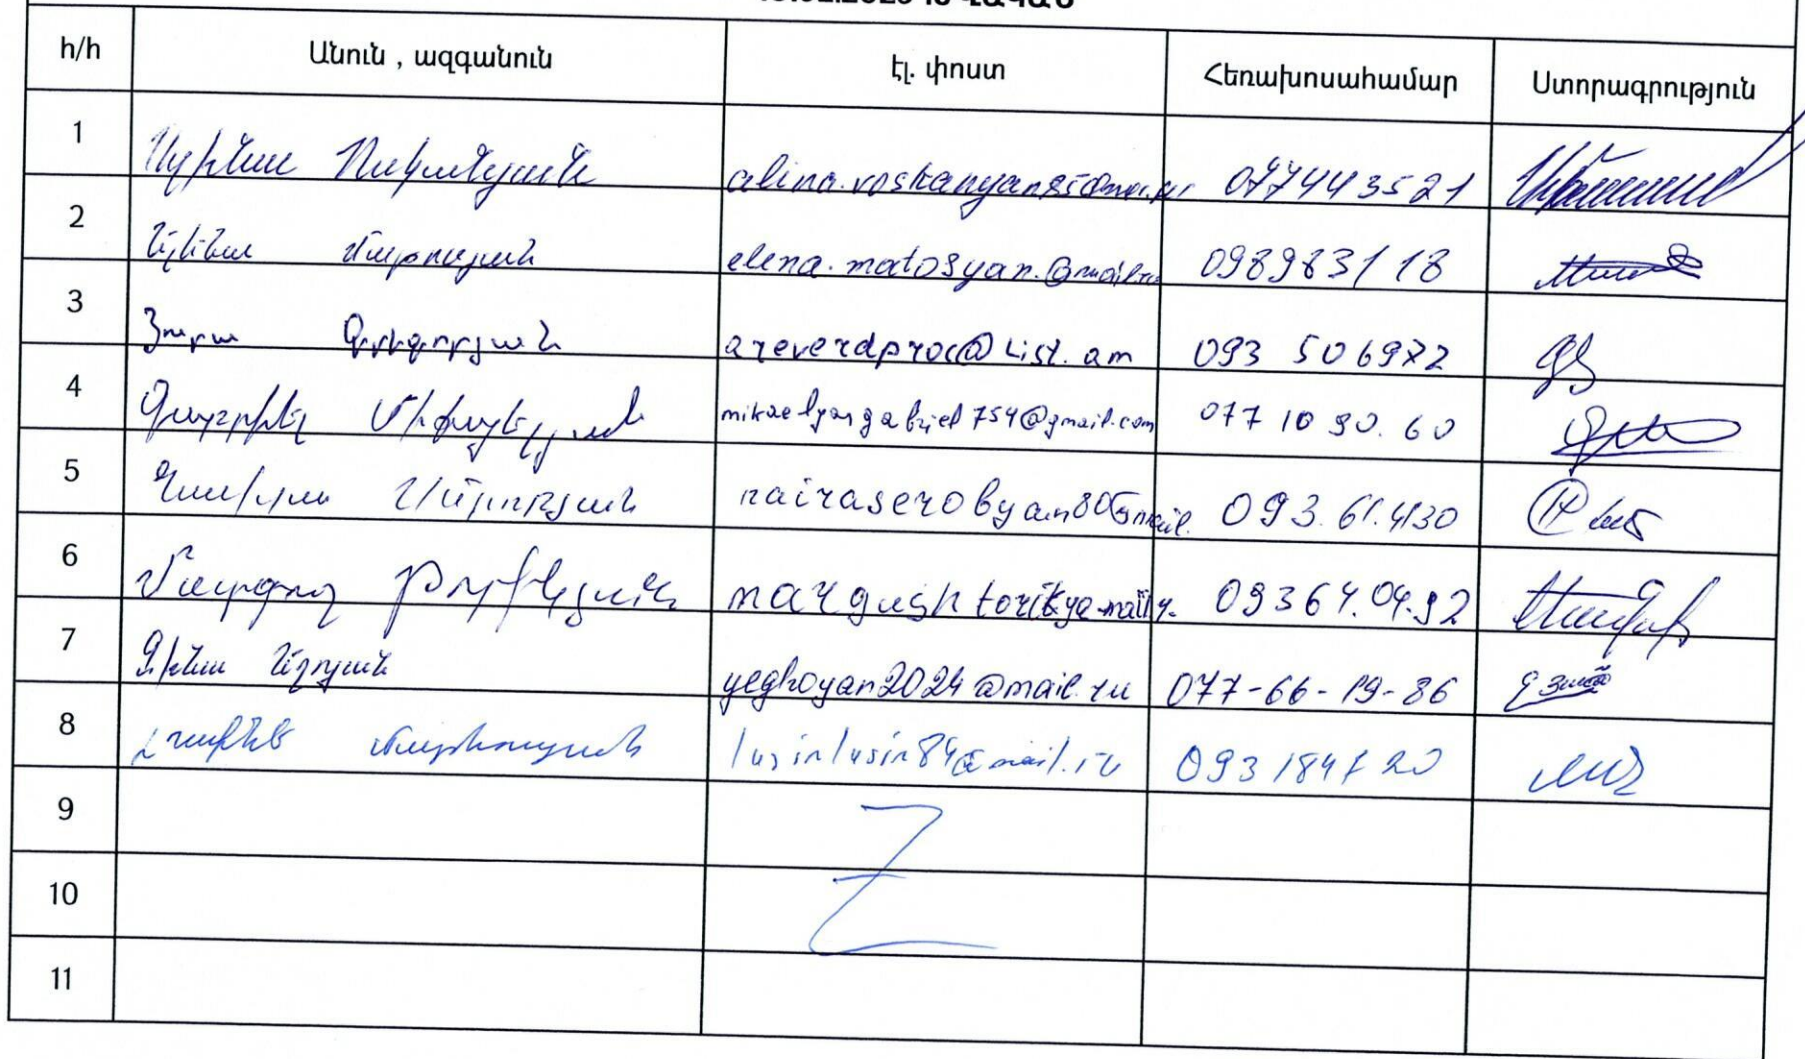 h/h Անուն , ազգանուն էլ. փոստ Հեռախոսահամար Ստորագրություն
1 Ալինա Ոսկանյան alina.voskanyan95@mail.ru 077443521
2 Ելենա Մաթոսյան elena.matosyan.@mail.ru 098983118
3 Յուրա Գրիգորյան areverdproc@list.am 093 506972
4 Գաբրիել Միքայելյան mikaelyangabriel754@gmail.com 077 10 90. 60
5 Նաիրա Սերոբյան nairaserobyan80@mail. 093.61.4130
6 Մարգուշ Թորիկյան 09364.04.92
7 Զինա Եղոյան yeghoyan2024@mail.ru 077-66-19-86
8 Մարտոսյան lusinlusin84@mail.ru
9
10
11